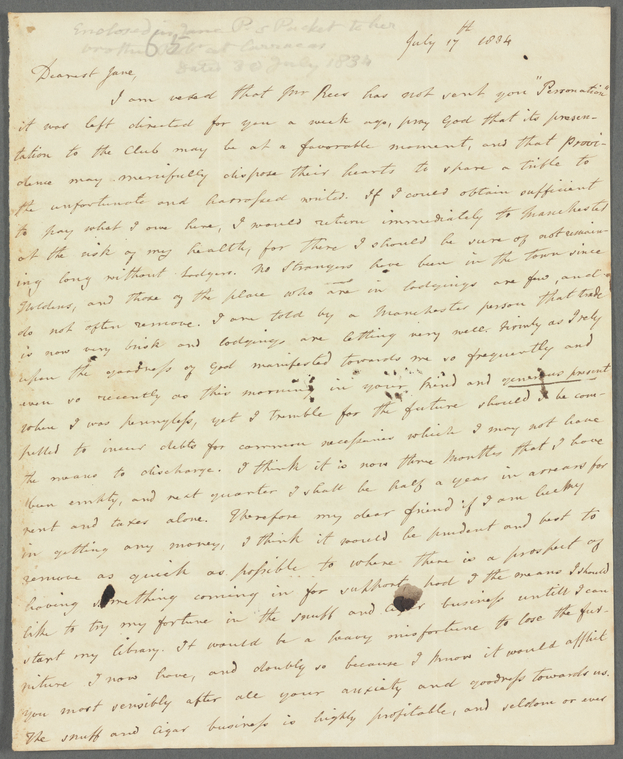 Enclosed in Jane P.s Packet to her
brother Rob.t at Carracas
65
date 30 July 1834
July 17th 1834
Dearest Jane,
I am vexed that Mr Rees has not sent you "Personation"
it was left directed for you a week ago, pray God that its presen-
tation to the Club may be at a favorable moment, and that Provi-
dence may mercifully dispose their hearts to spare a trifle to
the unfortunate and harrassed writer. If I could obtain sufficient
to pay what I owe here, I would return immediately to Manchester
at the risk of my health, for there I should be sure of not remain-
ing long without Lodgers. No Strangers have been in the town since
and those of the place who are in lodgings are few, and
do not often remove. I am told by a Manchester person that trade
is now very brisk and lodgings are letting very well. Firmly as I rely
upon the goodness of God manifested towards me so frequently and
even so recently as this morning in your kind and generous present
when I was pennyless, yet I tremble for the future should I be com-
pelled to incur debts for common necessaries which I may not have
the means to discharge. I think it is now three Months that I have
been empty, and next quarter I shall be half a year in arrears for
rent and taxes alone. Therefore my dear friend if I am lucky
in getting any money, I think it would be prudent and best to
remove as quick as possible to where there is a prospect of
having something coming in for support, had I the means I should
like to try my fortune in the snuff and cigar business untill I can
start my library. It would be a heavy misfortune to lose the fur-
niture I now have, and doubly so because I know it would afflict
you most sensibly after all your anxiety and goodness towards us.
The snuff and cigar business is highly profitable, and seldom or ever